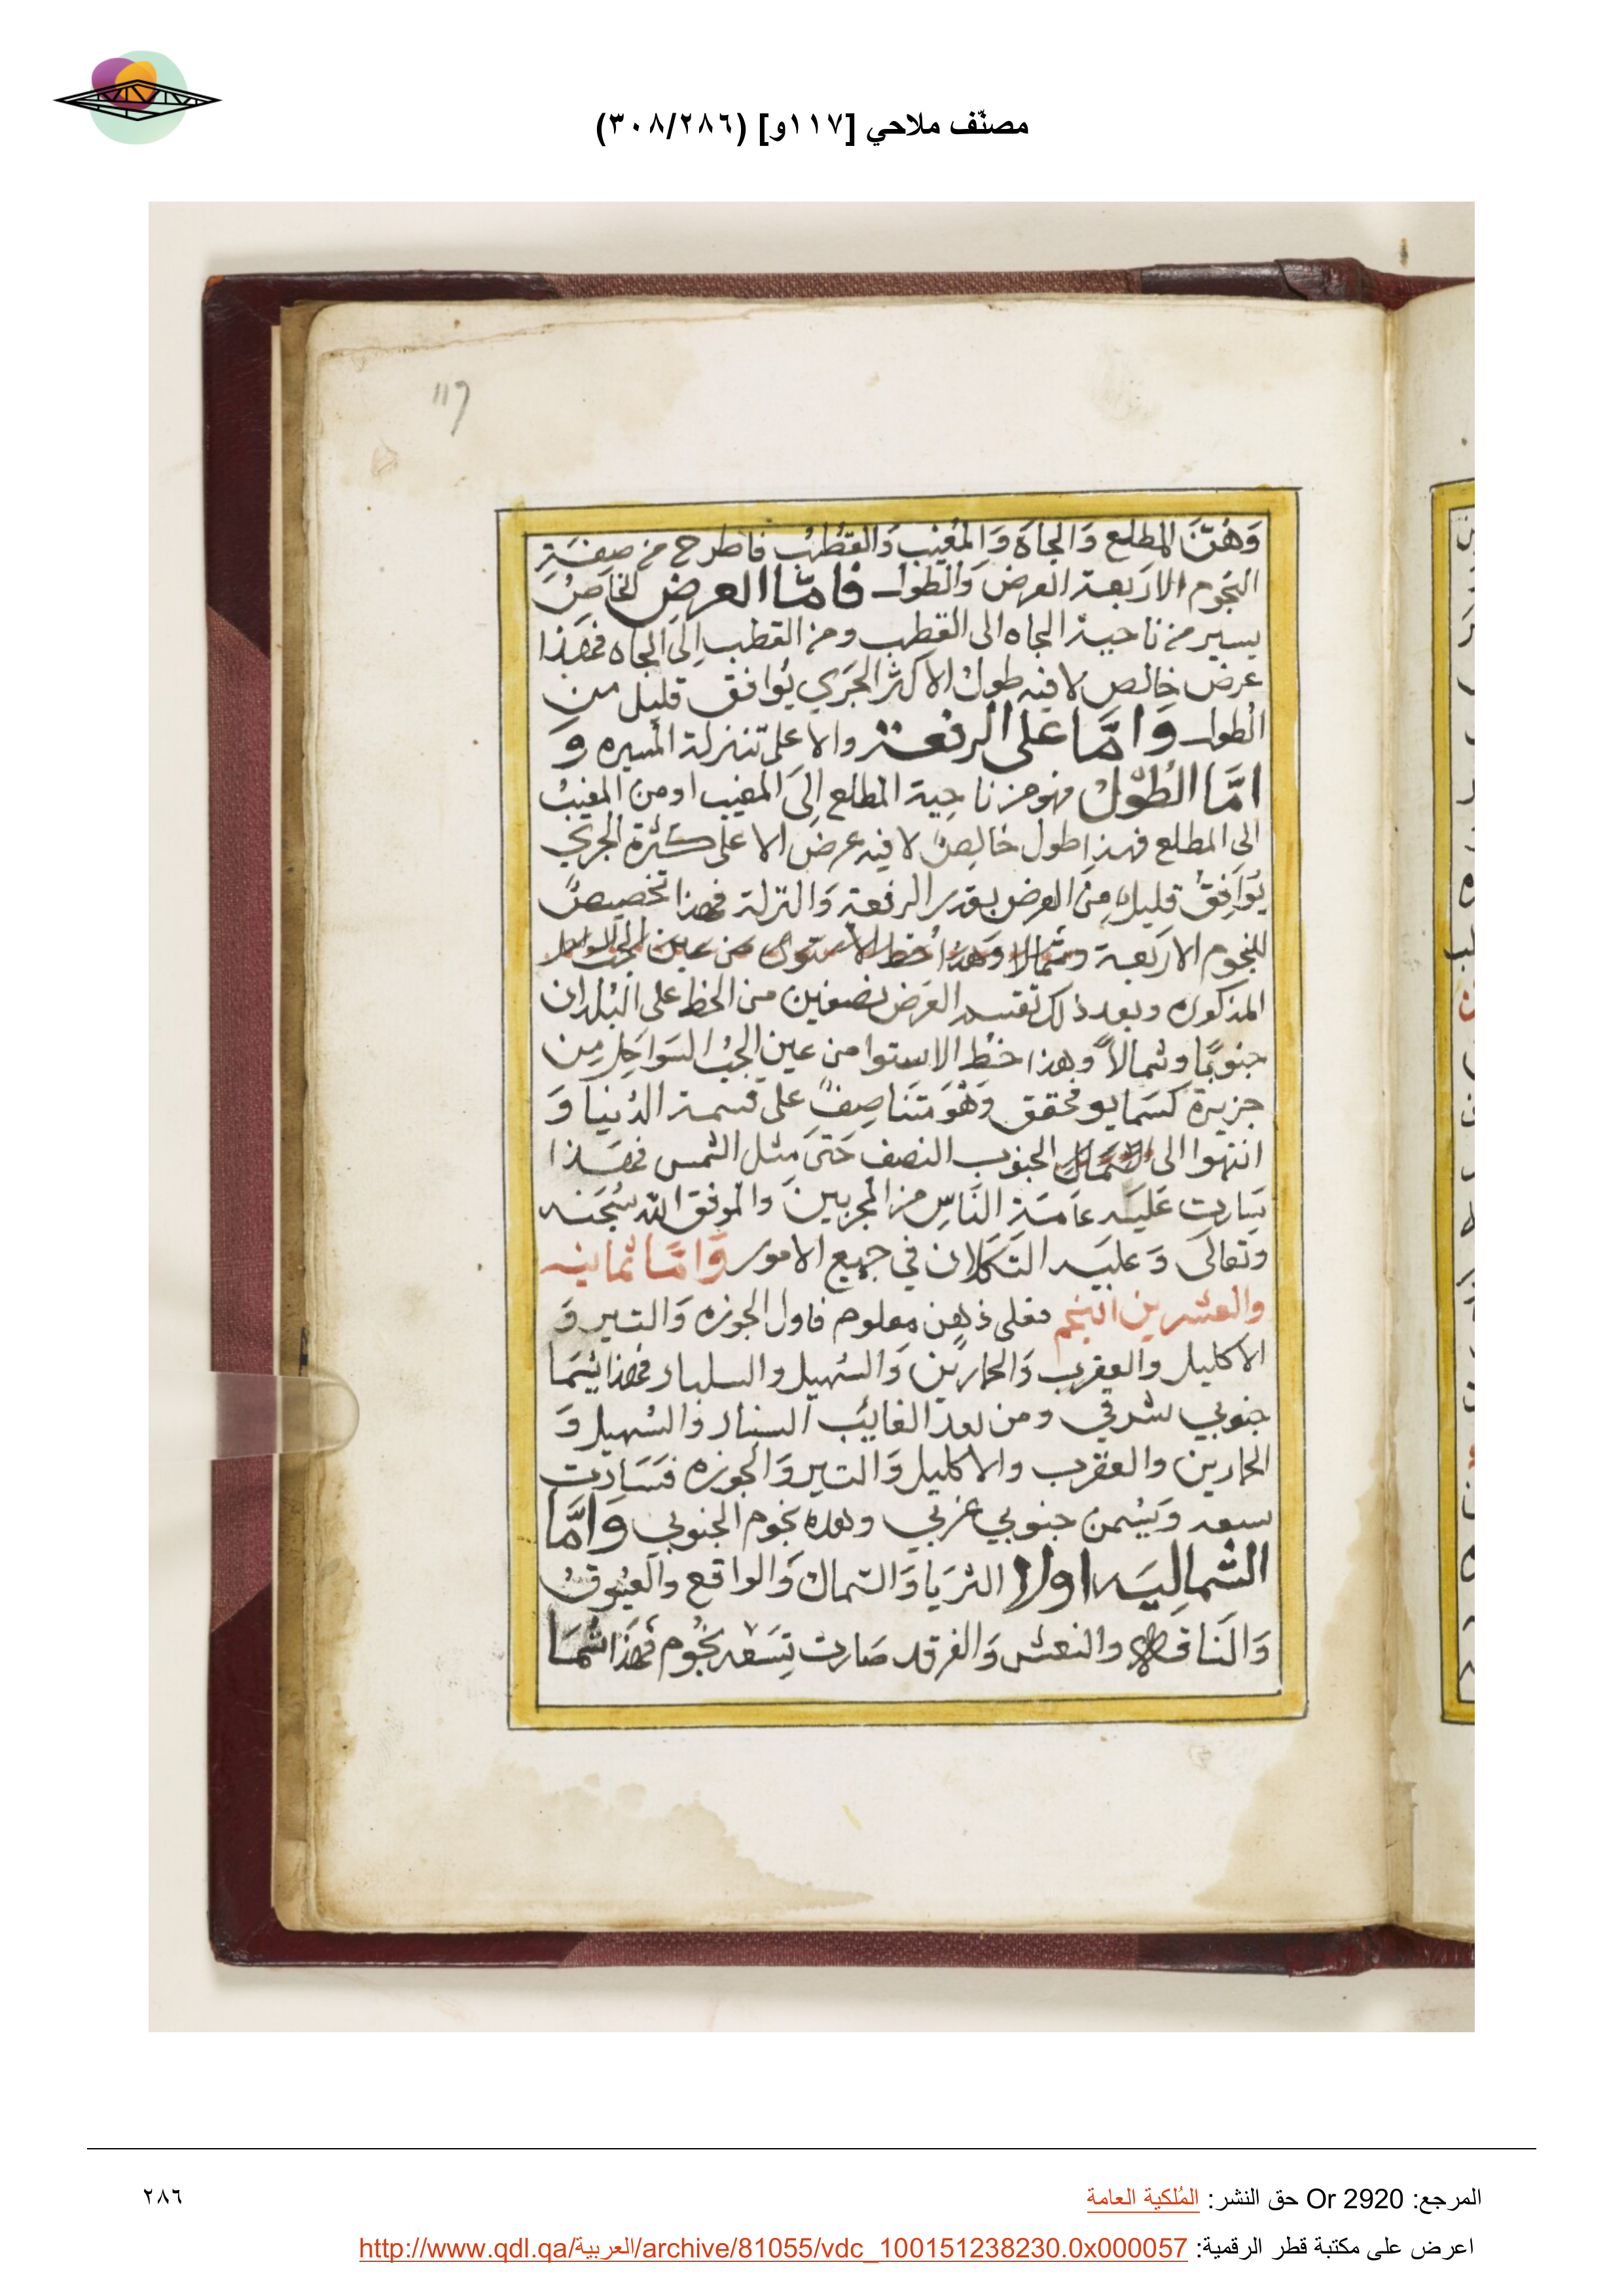 مصنّف ملاحي [١١٧و] (٣٠٨/٢٨٦)
117
وَهُنَّ المطلع وَالجاه وَالمُغيب وَالقطُب فاطرح من صفَةِ
النجوم الاربعة العرض وَالطول فامّا العرض الخاصُ
يسير من ناحية الجاه الى القطب ومن القطب اِلى الجاه فهَذا
عرض خالص لا فيه طول الا كثر الجَري يُوافق قليل من
الطول وَامَّا على الرفعة والا على تنزلة المسيره وَ
امَّا الطُوْلُ فهو من ناحِية المطلع اِلىَ المغيب او من المغيبُ
الى المطلع فهذا طول خالِصٌ لا فيه عرض الا على كثرة الجري
يُوَافِقُ قليل مِنَ العرض بقدر الرفعة وَالنزلة فهذا تخصيصٌ
للنجوم الاربعة وشمالا وَهذا خط الاستوى من عين
المذكوره وبعد ذلك تقسم العَرض نصفين من الخط على البُلدان
جنوبًا وشمالاً وهذا خط الاستوا من عين الجُب السَواحِل مِن
جزيرة كسَمايو محقق وَهْوَ مَتَناصِفً على قسمة الدُنيا وَ
انتهوا الى الشمال الجنوب النصف حَتىَ مثل الشمس فهَذا
سَارت عَليَه عامَة النَاسِ من المجربينَ والموفق الله سُبحَنه
وتعالىَ وَعليَه التَكلان في جميع الامور وَامَّا ثمانيه
والعشرين النجم فعلى ذهن معلوم فاول الجوزه وَالتير وَ
الاكليل والعقرب وَالحمارين وَالسُهيل والسلبار فهذا يُسَمَا
جنوبي شرقي ومن بعد الغايبُ السنبار وَالسُهيل وَ
الحمارين والعقرب والاكليل وَالتير وَالجوزه فَسَارت
سبعه وَيُسْمن جنوبي غربي وهذه نجوم الجنوبي وَامَّا
الشماليَه اولا الثرَيا وَالسَماك وَالواقع والعَيُوقُ
وَالنَاقه والنعش وَالفرقد صَارت تِسَعه نجُوم فهَذا شُمَا
المرجع: Or 2920 حق النشر: المُلكية العامة
٢٨٦
اعرض على مكتبة قطر الرقمية: http://www.qdl.qa/العربية/archive/81055/vdc_100151238230.0x000057